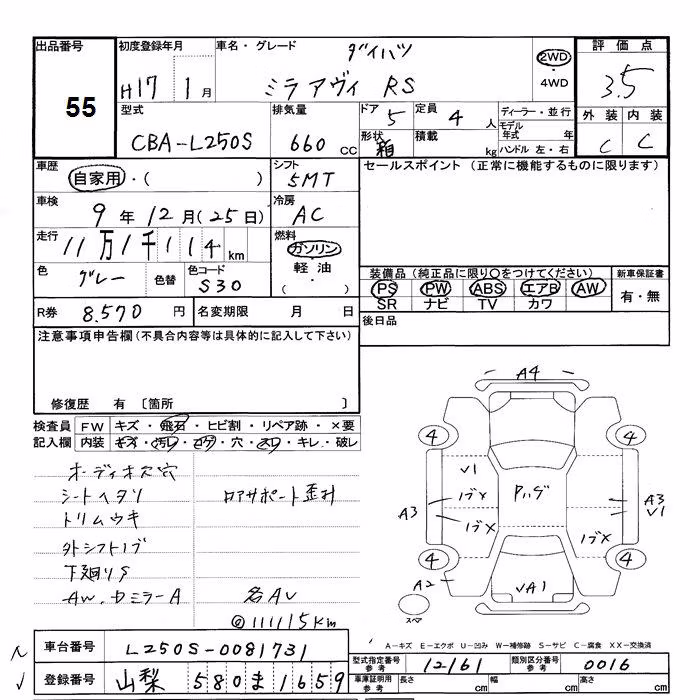 出品番号
55
初度登録年月
H17 1月
車名・グレード
ダイハツ
ミラアヴィ RS
2WD
・
4WD
評価点
3.5
外装 内装
C C
型式
CBA-L250S
排気量
660 cc
ドア 5
形状 箱
定員 4 人
積載 kg
ディーラー・並行
モデル
年式 年
ハンドル 左・右
車歴
自家用・( )
シフト
5MT
セールスポイント (正常に機能するものに限ります)
車検
9年12月(25日)
冷房
AC
走行
11万1千114 km
燃料
ガソリン
軽油
( ・ )
色
グレー
色替
色コード
S30
装備品 (純正品に限り○をつけてください)
PS PW ABS エアB AW
SR ナビ TV カワ
新車保証書
有・無
R券 8.570 円
名変期限 月 日
後日品
注意事項申告欄 (不具合内容等は具体的に記入して下さい)
修復歴 有 〔箇所 〕
検査員
記入欄
FW キズ・飛石・ヒビ割・リペア跡・×要
内装 キズ・汚レ・コゲ・穴・スレ・キレ・破レ
オーディオス穴
シートヘタリ
ロアサポート歪み
トリムウキ
外シフトノブ
下廻りS
AW.ドミラーA
名AV
@111115km
A4
4
4
V1
1ブメ
1ブメ
Pハゲ
A3
A3
V1
1ブメ
4
4
A2
VA1
スペア
A-キズ E-エクボ U-凹み W-補修跡 S-サビ C-腐食 XX-交換済
車台番号
L250S-0081731
登録番号
山梨 580ま1659
型式指定番号
参考
12161
類別区分番号
参考
0016
車庫証明用
参考
長さ cm
幅 cm
高さ cm